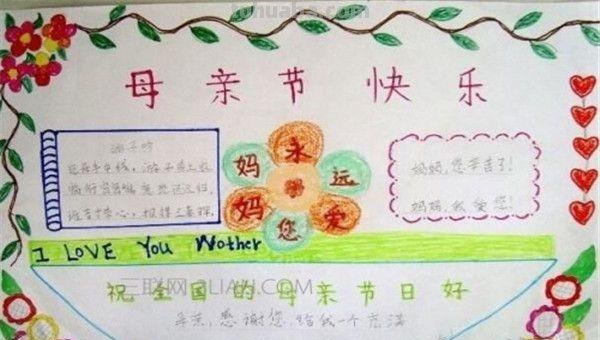 tuhuaba.com
母亲节快乐
游子吟
慈母手中线，游子身上衣
临行密密缝 意恐迟迟归，
谁言寸草心，报得三春晖
妈 永 远
妈 您 爱
妈妈，您辛苦了！
妈妈，我爱您！
I LOVE You Wother
三联网 3LIAN.COM
祝全国的母亲节日好
感谢您，给我一个充满